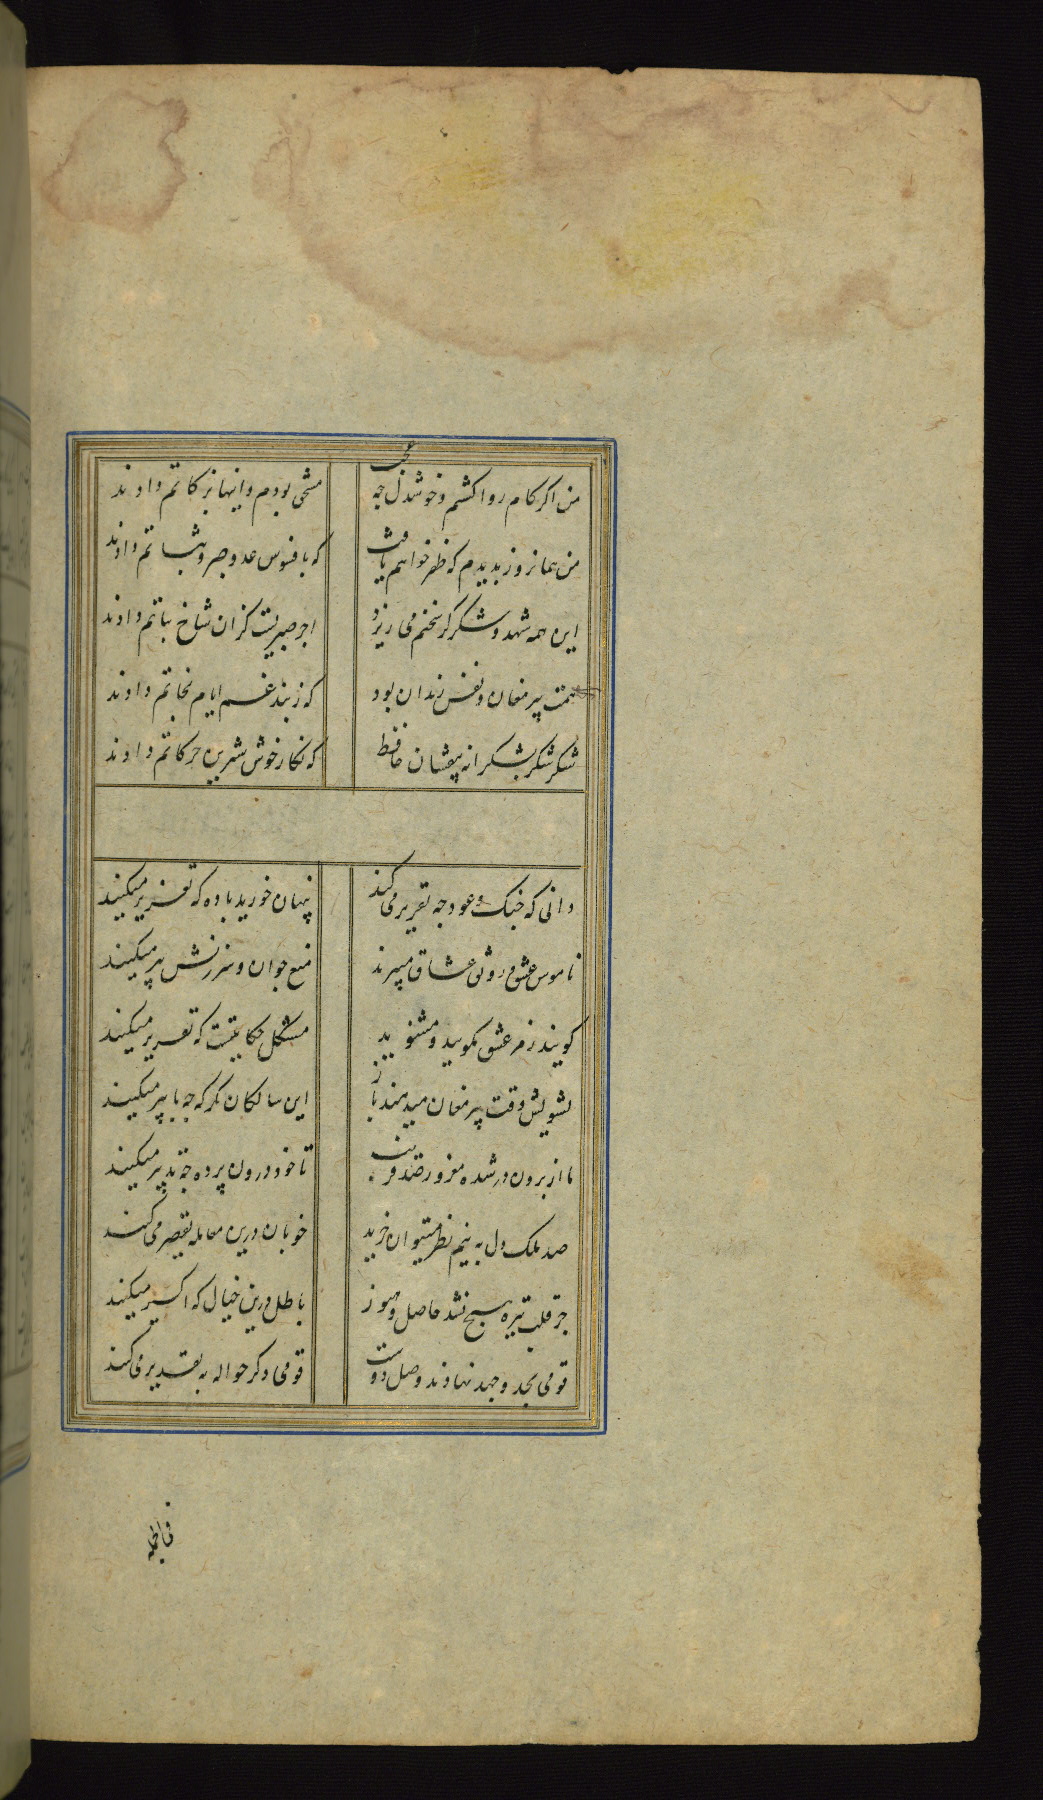 من اکر کام روا کشتم و خوشدل چه عجب
مستحق بودم و اینها بزکاتم دادند
من همانروز بدیدم که ظفر خواهم یافت
که بافسوس عدو صبر و ثباتم دادند
این همه شهد و شکر کز سخنم می ریزد
اجر صبریست کزان شاخ نباتم دادند
همت پیر مغان و نفس رندان بود
که ز بند غم ایام نجاتم دادند
شکر شکر بشکرانه بیفشان حافظ
که نکار خوش شیرین حرکاتم دادند
دانی که چنک و عود چه تقریر می کنند
پنهان خورید باده که تعزیر میکنند
ناموس عشق و رونق عشاق میبرند
منع جوان و سرزنش پیر میکنند
کویند رمز عشق مکویید و مشنوید
مشکل حکایتیست که تقریر میکنند
تشویش وقت پیر مغان میدهند باز
این سالکان نکر که چه با پیر میکنند
ما از برون در شده مغرور صد فریب
تا خود درون پرده چه تدبیر میکنند
صد ملک دل به نیم نظر میتوان خرید
خوبان درین معامله تقصیر می کنند
جز قلب تیره هیچ نشد حاصل و هنوز
باطل درین خیال که اکسیر میکنند
قومی بجد و جهد نهادند وصل دوست
قومی دکر حواله به تقدیر می کنند
فی الجمله